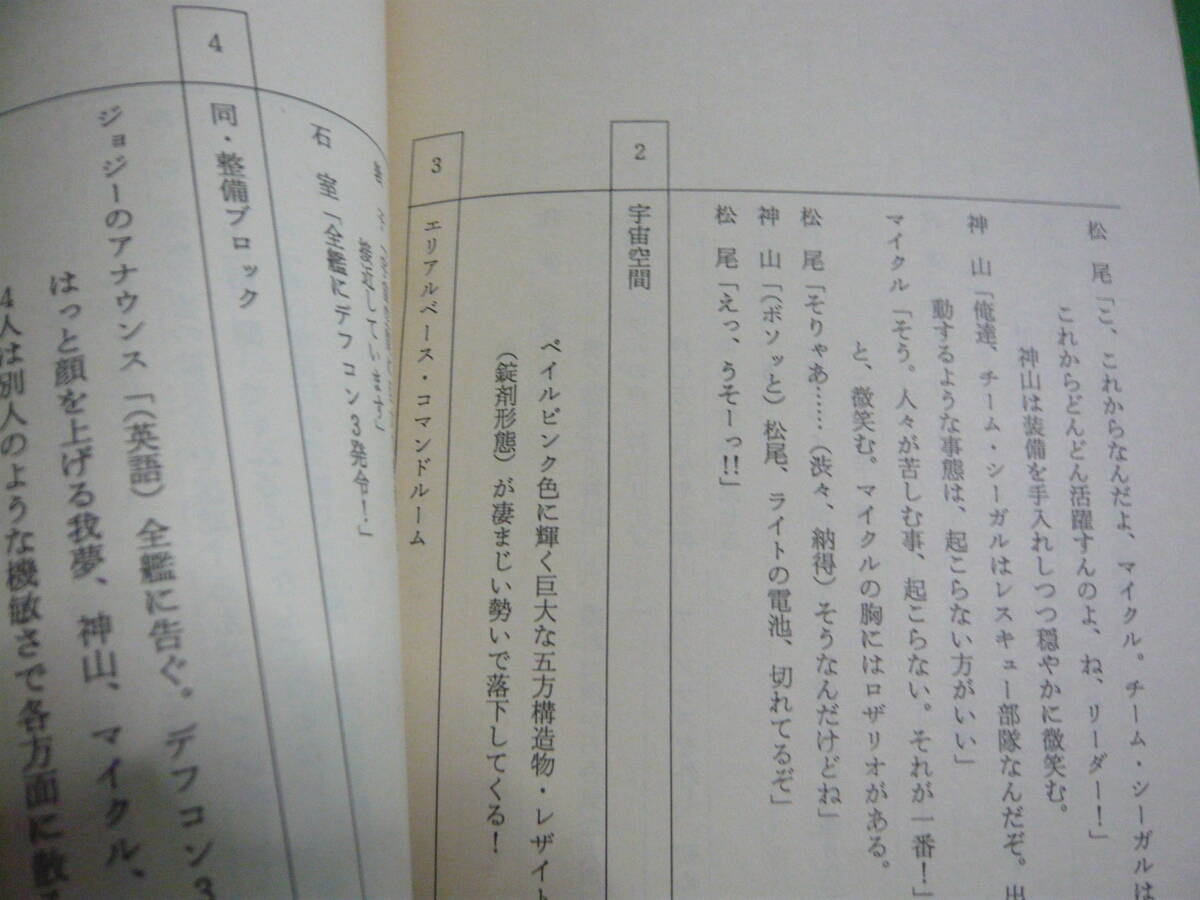 松尾「こ、これからなんだよ、マイクル。チーム・シーガルは
これからどんどん活躍すんのよ、ね、リーダー！」
神山は装備を手入れしつつ穏やかに微笑む。
神山「俺達、チーム・シーガルはレスキュー部隊なんだぞ。出
動するような事態は、起こらない方がいい」
マイクル「そう。人々が苦しむ事、起こらない。それが一番！」
と、微笑む。マイクルの胸にはロザリオがある。
松尾「そりゃあ……（渋々、納得）そうなんだけどね」
神山「（ボソッと）松尾、ライトの電池、切れてるぞ」
松尾「えっ、うそーっ!!」
2 宇宙空間
ペイルピンク色に輝く巨大な五方構造物・レザイト
（錠剤形態）が凄まじい勢いで落下してくる！
3 エリアルベース・コマンドルーム
接近しています」
石室「全艦にデフコン3発令！」
4 同・整備ブロック
ジョジーのアナウンス「（英語）全艦に告ぐ。デフコン3
はっと顔を上げる我夢、神山、マイクル、
4人は別人のような機敏さで各方面に散